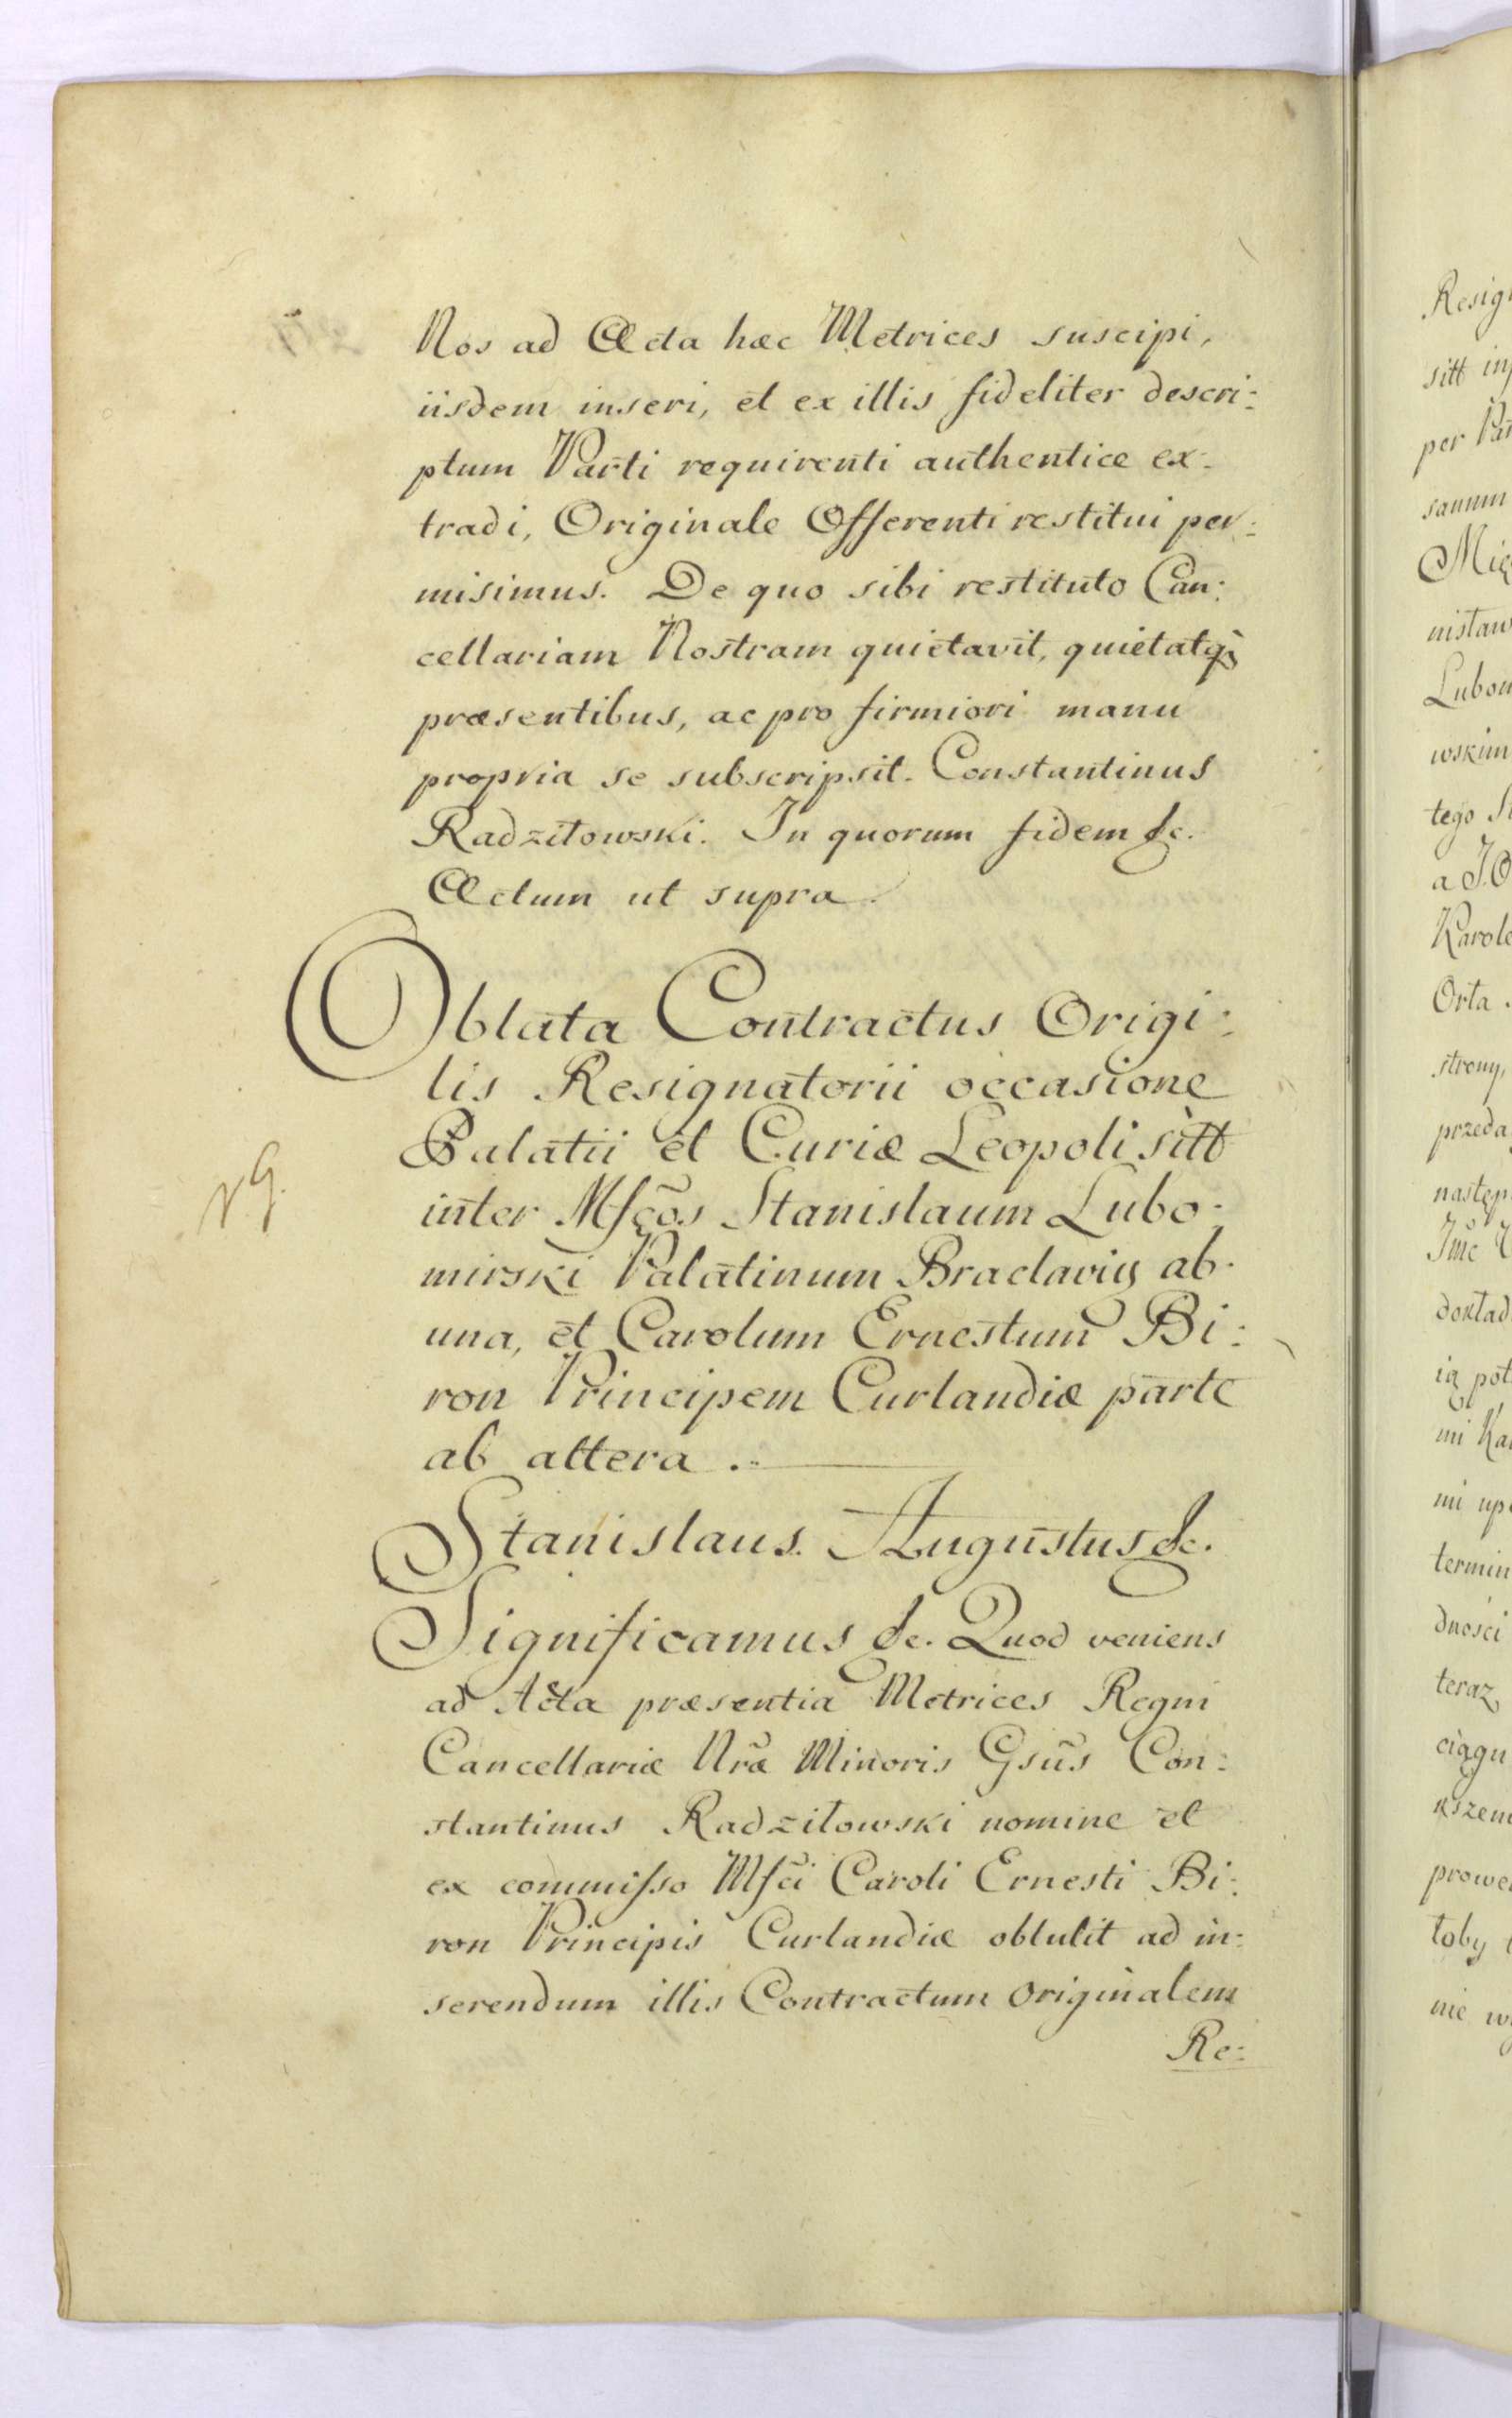 Nos ad Acta hæc Metrices suscipi,
iisdem inseri, et ex illis fideliter descri:
ptum Parti requirenti authentice ex:
tradi, Originale Offerenti restitui per:
misimus. De quo sibi restituto Can:
cellariam Nostram quietavit, quietatq̀
præsentibus, ac pro firmiori manu
propria se subscripsit. Constantinus
Radziłowski. In quorum fidem &c.
Actum ut supra.
Oblata Contractus Origi:
lis Resignatorii occasione
Palatii et Curiæ Leopoli sitt
inter Mfc̃os Stanislaum Lubo:
mirski Palatinum Braclaviæ ab
una, et Carolum Ernestum Bi:
ron Principem Curlandiæ parte
ab altera.
N. G.
Stanislaus Augustus &c.
Significamus &c. Quod veniens
ad Acta præsentia Metrices Regni
Cancellariæ Nrã Minoris Gsũs Con:
stantinus Radziłowski nomine et
ex commisso Mfc̃i Caroli Ernesti Bi:
ron Principis Curlandiæ obtulit ad in:
serendum illis Contractum Originalem
Re:
Resig
sitt in
per Par
sanum
Mię
nisław
Lubom
wskim
tego
a J.O
Karole
Orta
strony,
przeda
następ
Jmć
dokład
ią pot
mi Ka
mi up
termin
dności
teraz
ciągu
kszem
prowe
toby
nie w